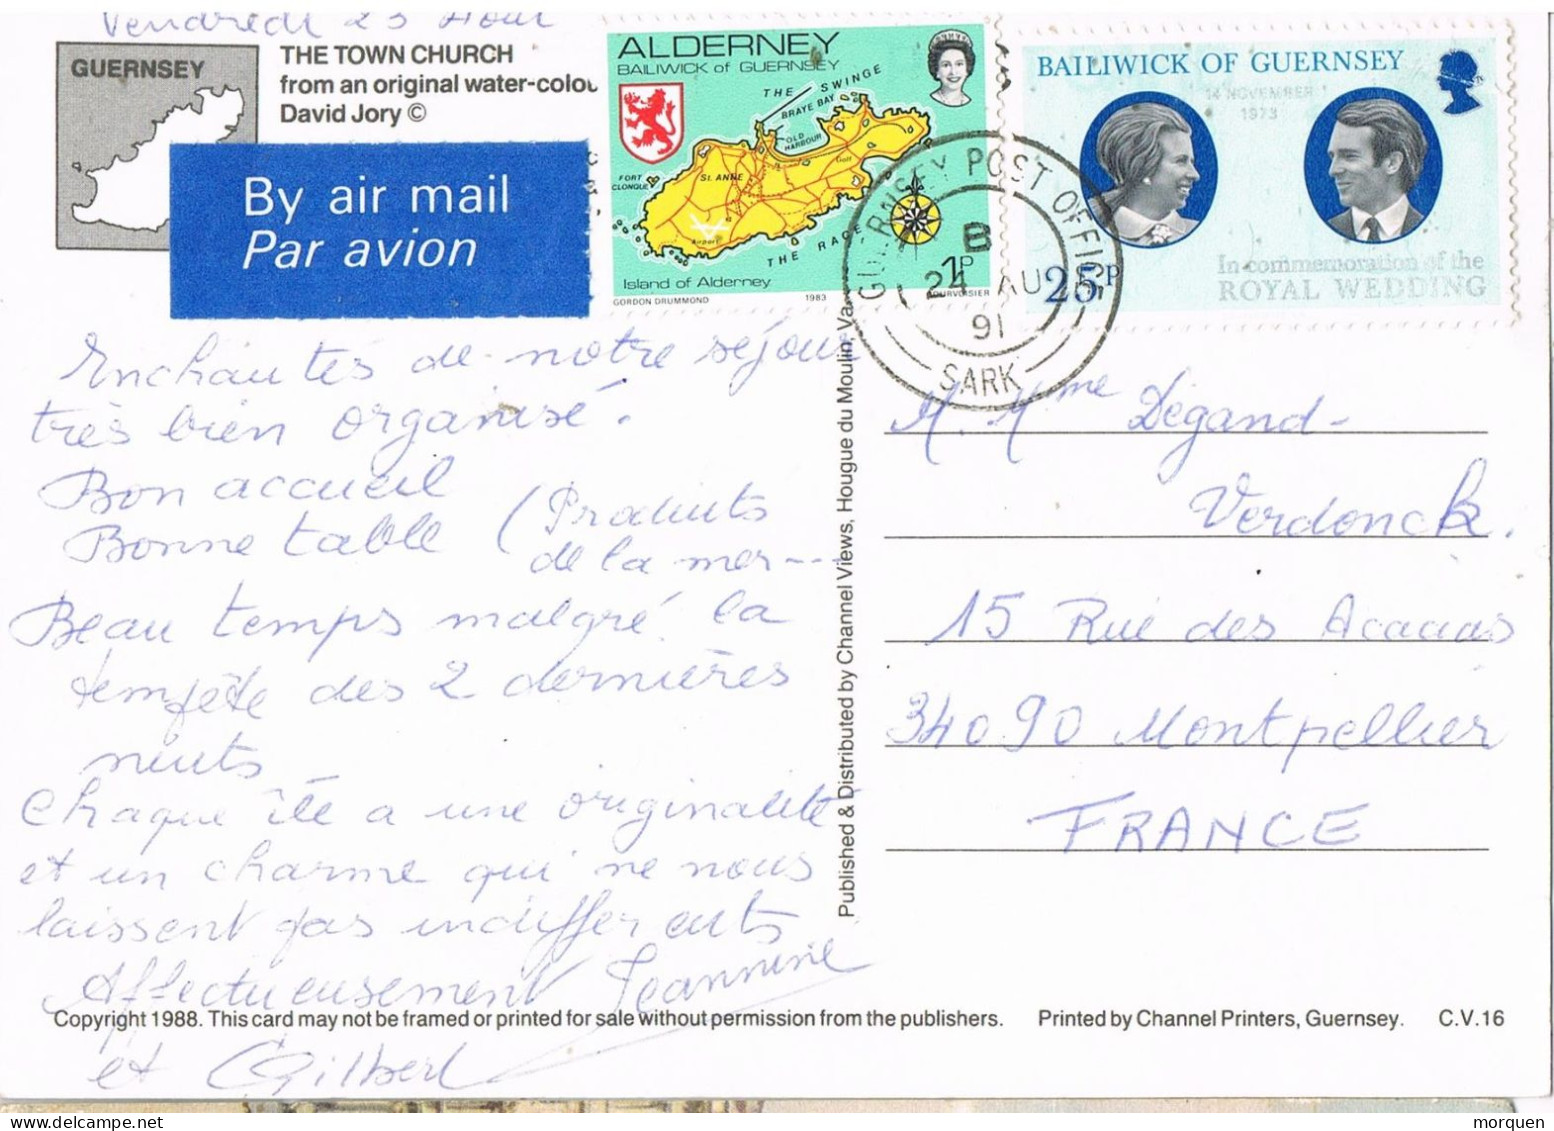 Vendredi 23 Août
GUERNSEY
THE TOWN CHURCH
from an original water-colou
David Jory ©
By air mail
Par avion
ALDERNEY
BAILIWICK of GUERNSEY
THE SWINGE
BRAYE BAY
OLD HARBOUR
Golf
St. ANNE
FORT CLONQUE
Airport
THE RACE
Island of Alderney
1P
GORDON DRUMMOND
1983
COURVOISIER
BAILIWICK OF GUERNSEY
14 NOVEMBER
1973
25P
In commemoration of the
ROYAL WEDDING
GUERNSEY POST OFFICE
B
24 AU
91
SARK
Enchantés de notre séjour
très bien organisé.
Bon accueil
Bonne table (Produits
de la mer---
Beau temps malgré la
tempête des 2 dernières
nuits
Chaque île a une originalité
et un charme qui ne nous
laissent pas indifférents
Affectueusement Jeannine
et Gilbert
M. Mme Dégand-
Verdonck.
15 Rue des Acacias
34090 Montpellier
FRANCE
Published & Distributed by Channel Views, Hougue du Moulin, Va
Copyright 1988. This card may not be framed or printed for sale without permission from the publishers.
Printed by Channel Printers, Guernsey. C.V.16
morquen